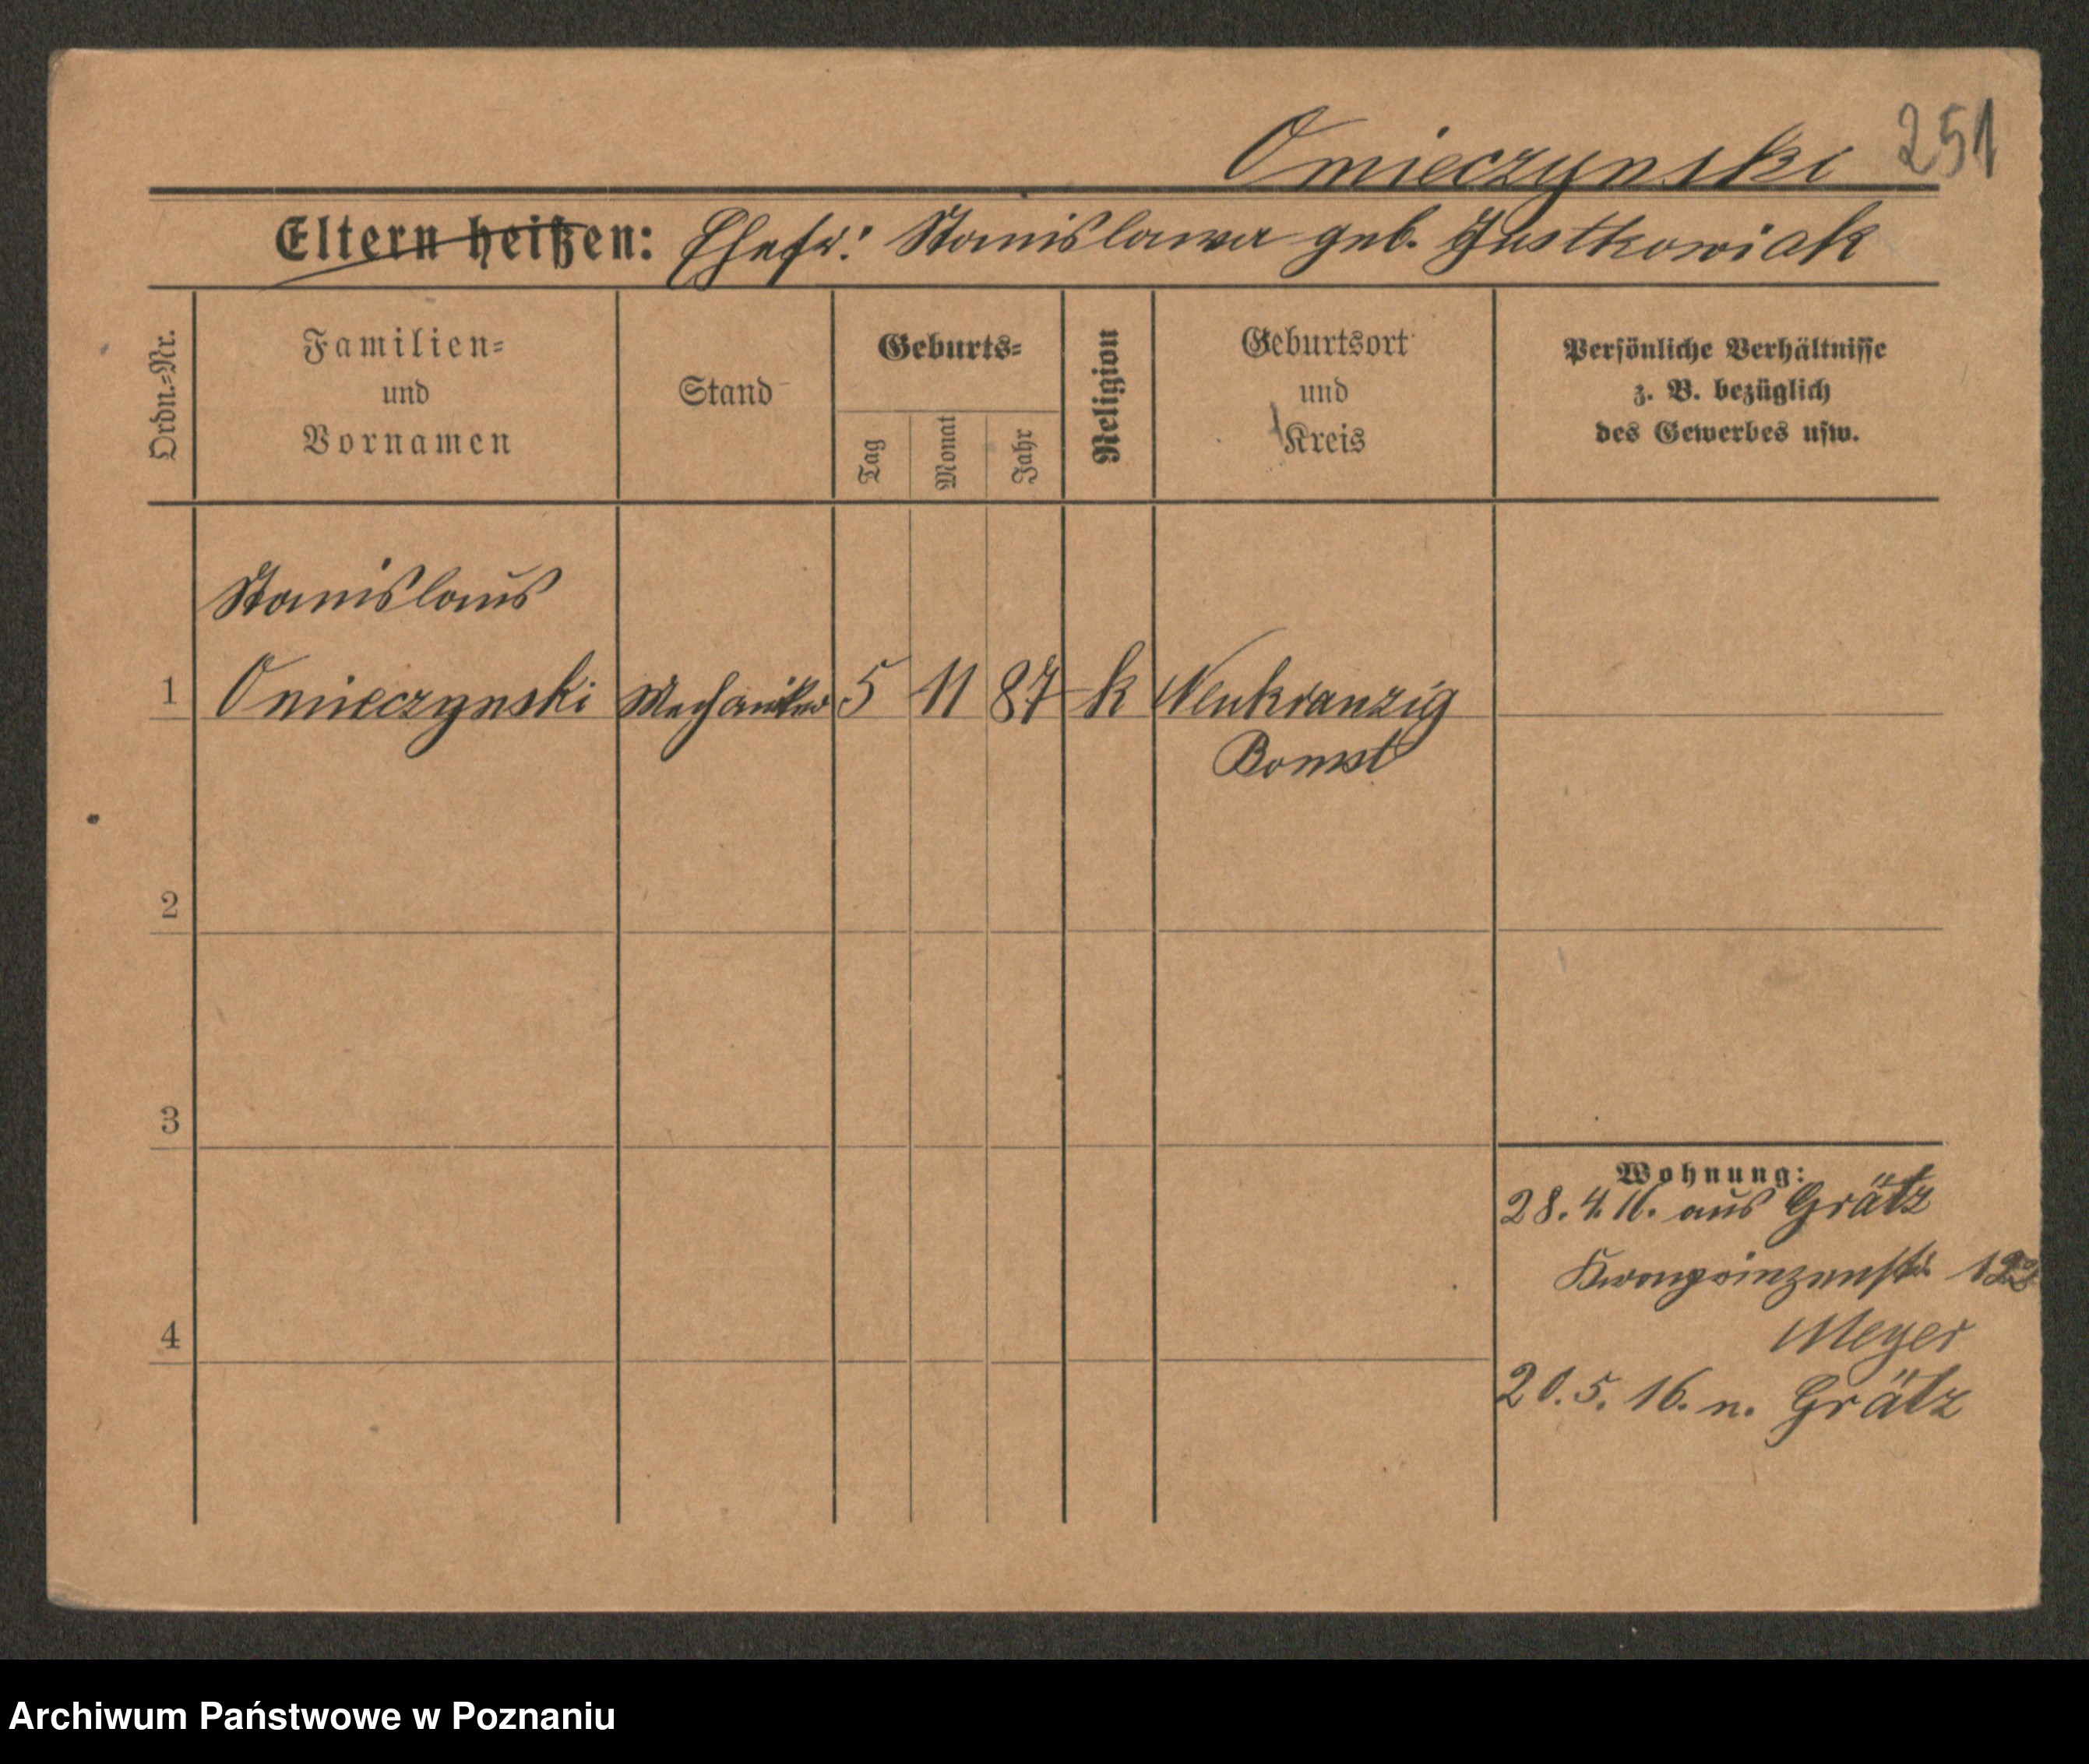 Omieczynski 251
Eltern heißen: Ehefr: Stanislawa geb. Justkowiak
Ordn.=Nr.
Familien=
und
Vornamen
Stand
Geburts=
Tag
Monat
Jahr
Religion
Geburtsort
und
Kreis
Persönliche Verhältnisse
z. B. bezüglich
des Gewerbes usw.
Stanislaus
1 Omieczynski Mechaniker 5 11 87 k Neukranzig
Bomst
2
3
4
Wohnung:
28. 4. 16. aus Grätz
Kronprinzenstr.
Meyer
20. 5. 16. n. Grätz
Archiwum Państwowe w Poznaniu